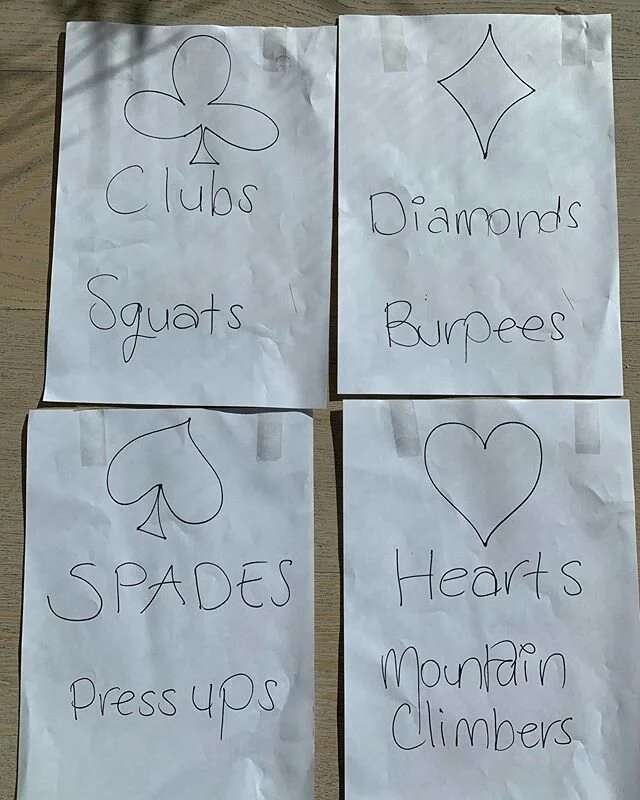 Clubs
Squats
Diamonds
Burpees
SPADES
Press ups
Hearts
Mountain
Climbers